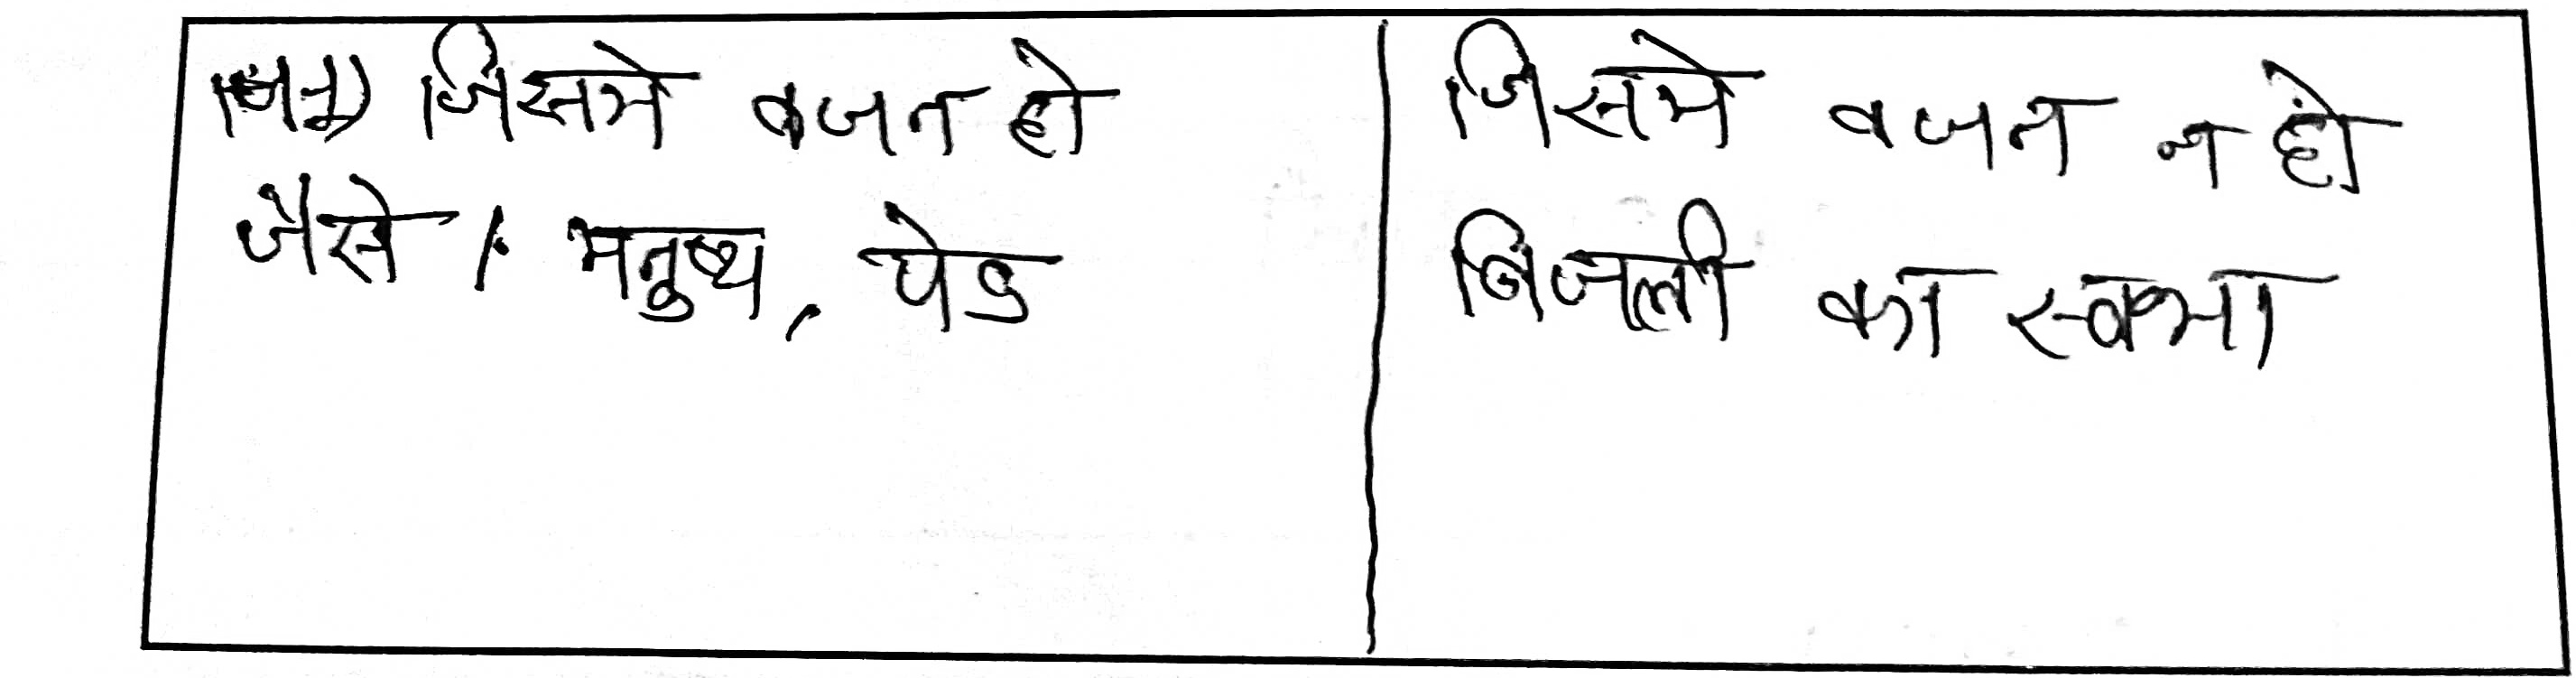 जिसमे वजन हो
जैसे /. मनुष्य, पेड
जिसमे वजन न हो
बिजली का